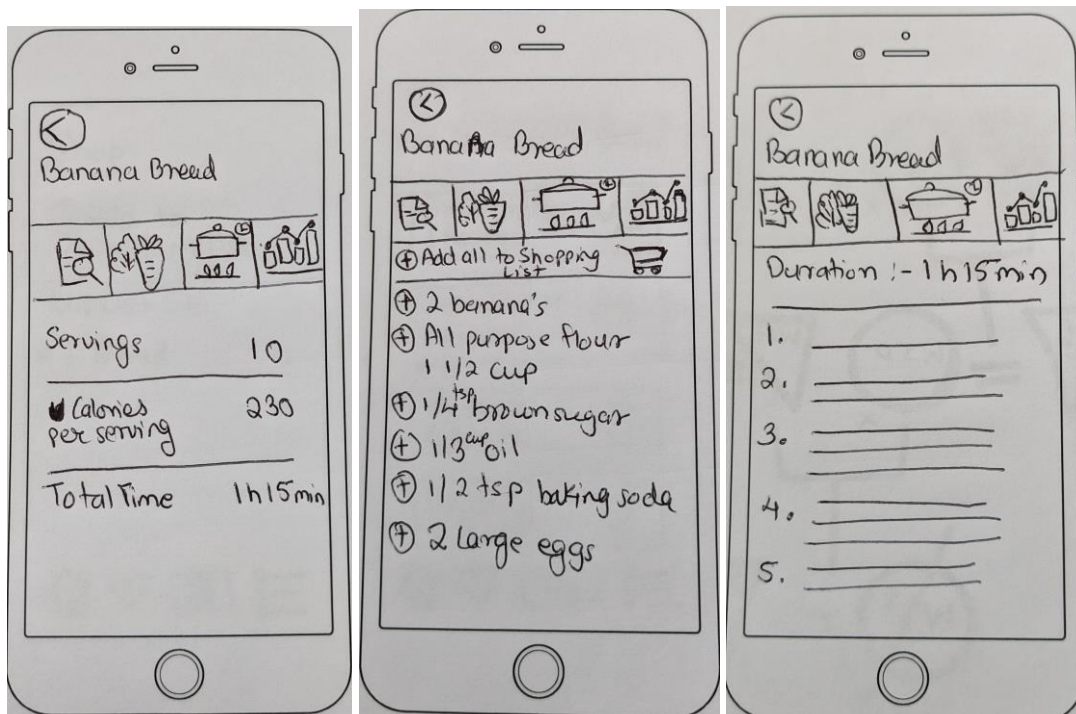 Banana Bread
Servings 10
Calories 230
per serving
Total Time 1h15min
Banana Bread
Add all to Shopping
List
2 banana's
All purpose flour
1 1/2 cup
1/4 tsp brown sugar
1/3 cup oil
1/2 tsp baking soda
2 Large eggs
Banana Bread
Duration :- 1h15min
1.
2.
3.
4.
5.